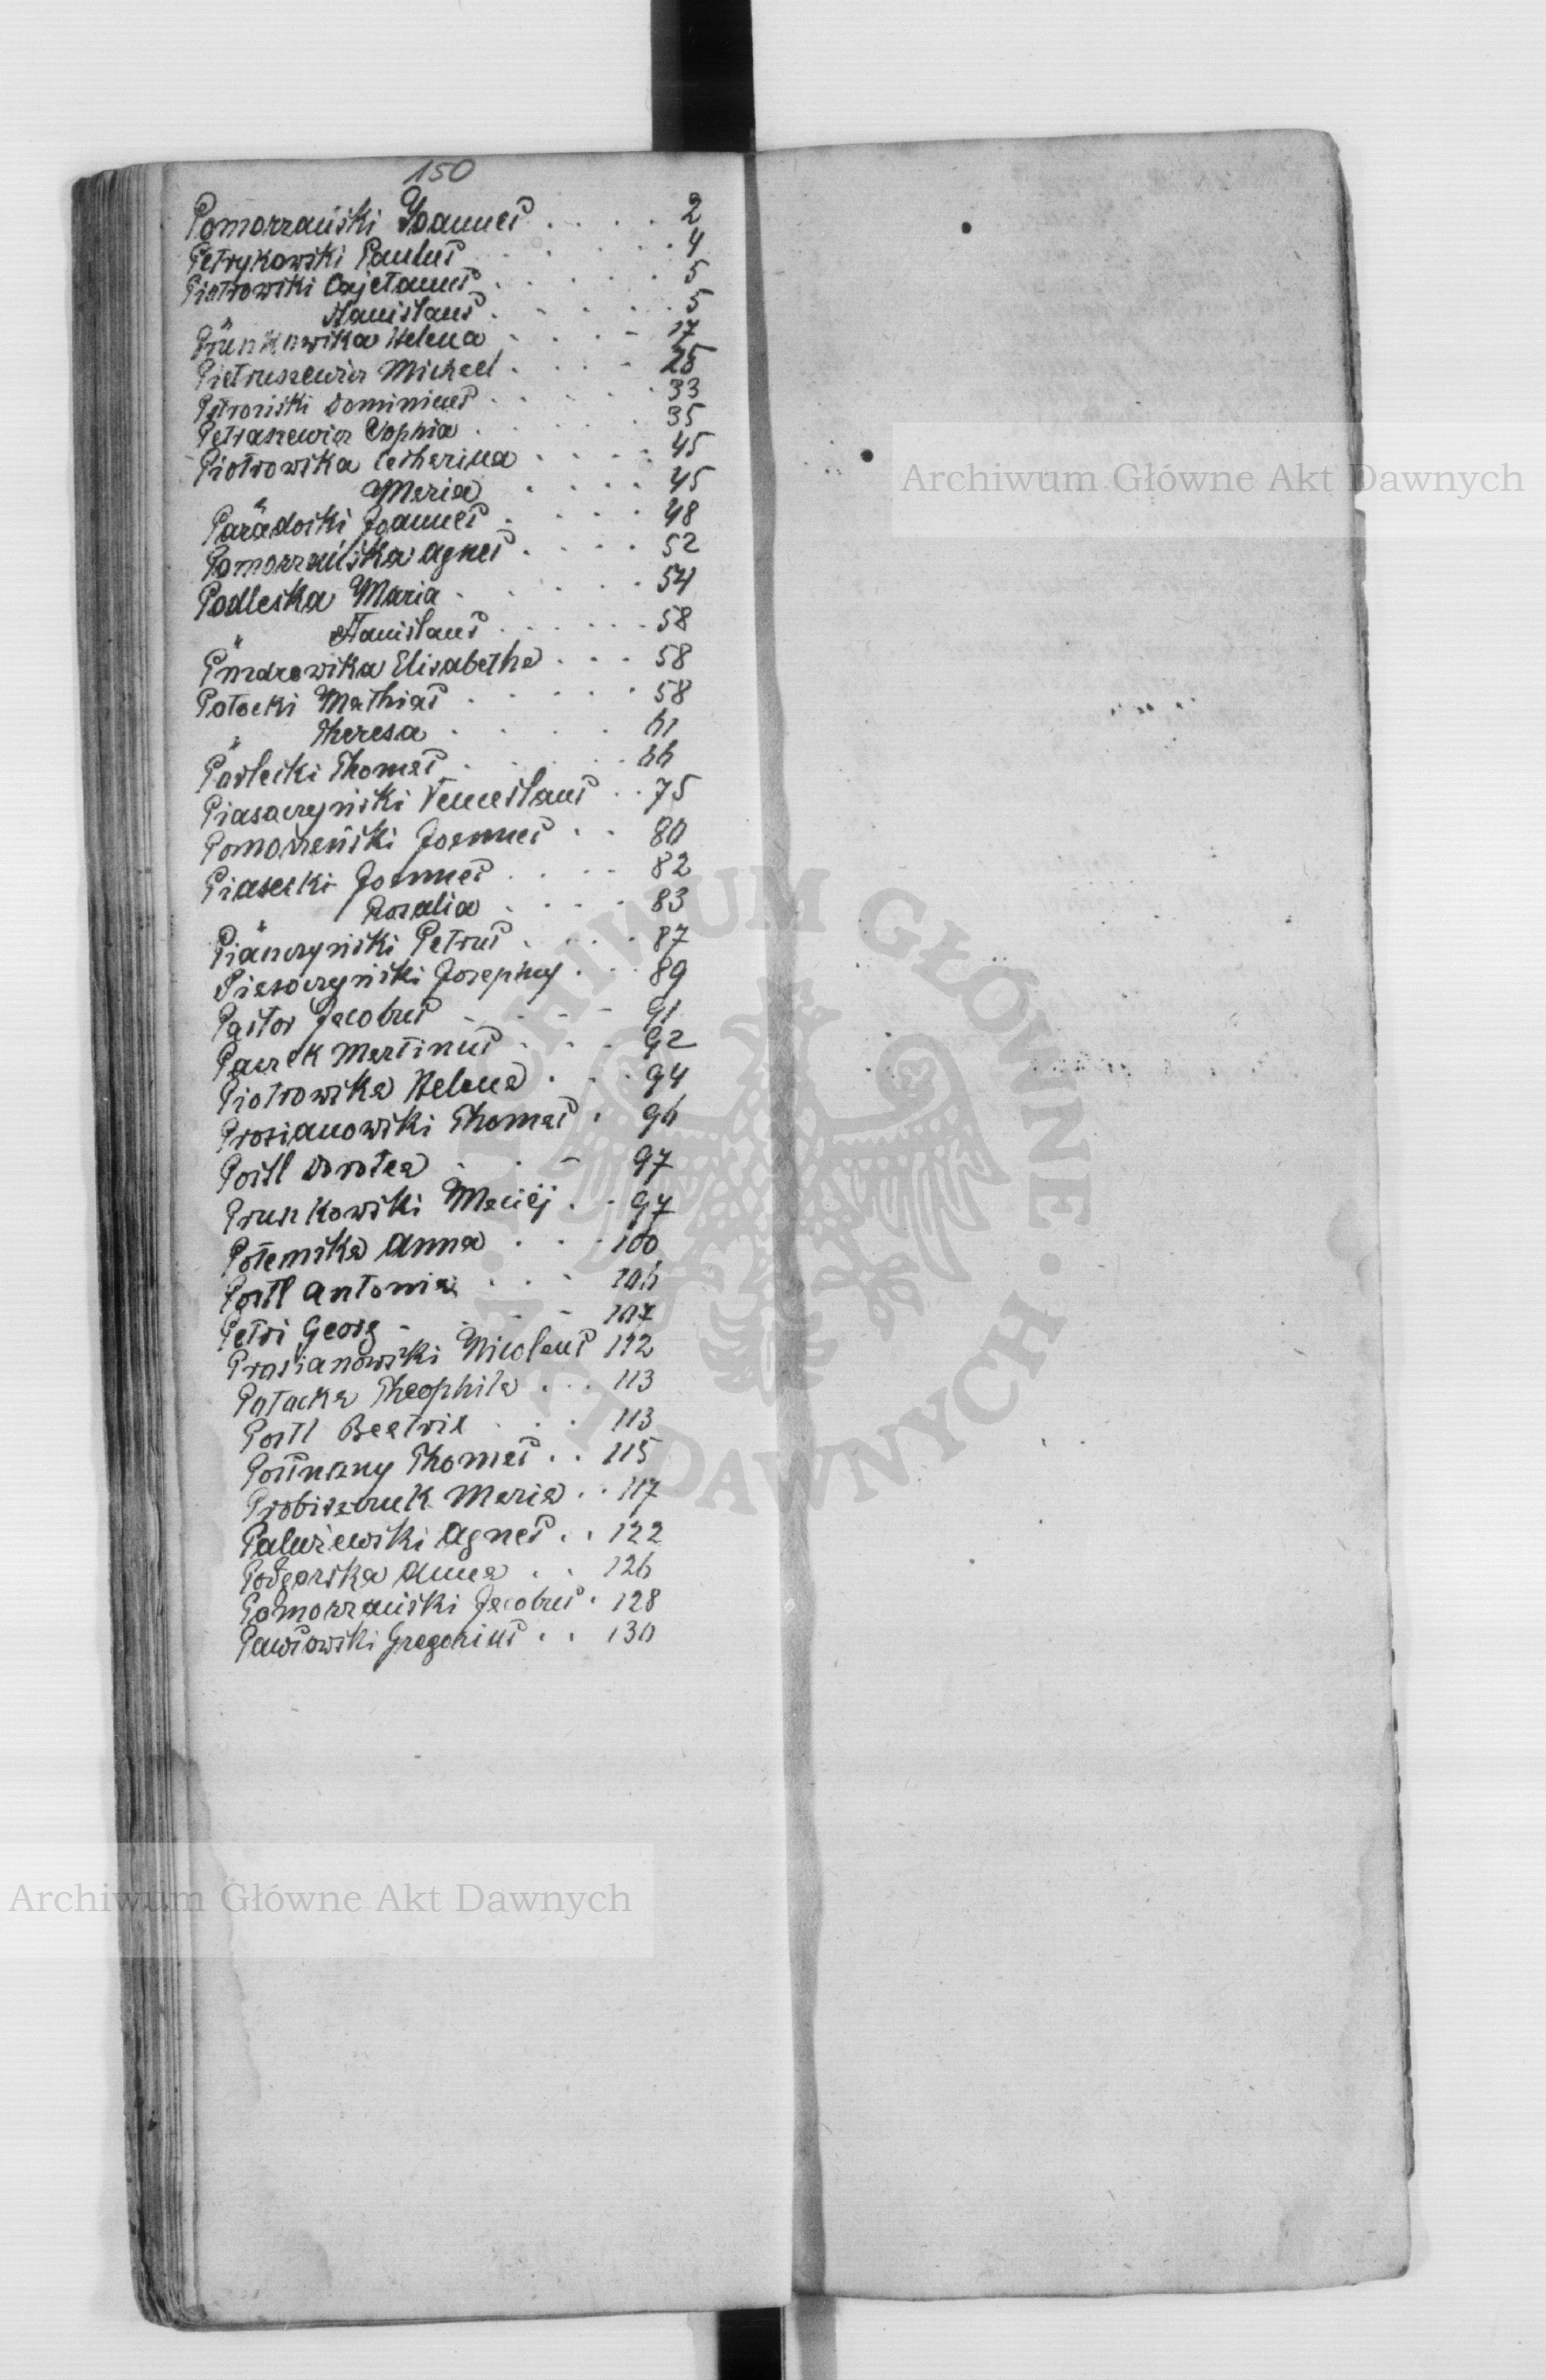 150
Pomorzański Joannes . . . . 2
Petrykowski Paulus . . . . . 4
Piotrowski Cajetanus . . . . . 5
" Stanislaus . . . . . 5
Prunkowska Helena . . . - 17
Pietruszewicz Michael . . . - 25
Petroński Dominicus . . . . . 33
Petraszewicz Sophia . . . . . 35
Piotrowska Catharina . . . . 45
" Maria . . . . 45
Paradoski Joannes . . . . 48
Pomorzańska Agnes . . . . 52
Podleska Maria . . . . . 54
" Stanislaus . . . . . 58
Elisabetha . . . 58
Potocki Mathias . . . . . 58
" Theresa . . . . 61
Thomas . . . . . 66
Piasaczyński Venceslaus . . 75
Pomorzański Joannes . . 80
Piasecki Joannes . . . . 82
" Rozalia . . . . 83
Petrus . . . . 87
Piasaczyński Josephus . . . 89
Pastor Jacobus - - - - 91
Pacrek Martinus . . . 92
Piotrowska Helena . . . 94
Prosianowski Thomas . 96
Postl Dorotea . . - 97
Prunkowski Maciéj . . 97
Potemska Anna . . . 100
Postl Antonia . . . 106
Petri Georg - - - - 107
Prosianowski Nicolaus 112
Potocka Theophila . . . 113
Postl Beatrix . . . 113
Thomas . . 115
Maria . . 117
Paluszewski Agnes . . 122
Podgorska Anna . . 126
Pomorzański Jacobus . 128
Pawłowski Gregorius . . 130
Archiwum Główne Akt Dawnych
ARCHIWUM GŁÓWNE AKT DAWNYCH
Archiwum Główne Akt Dawnych